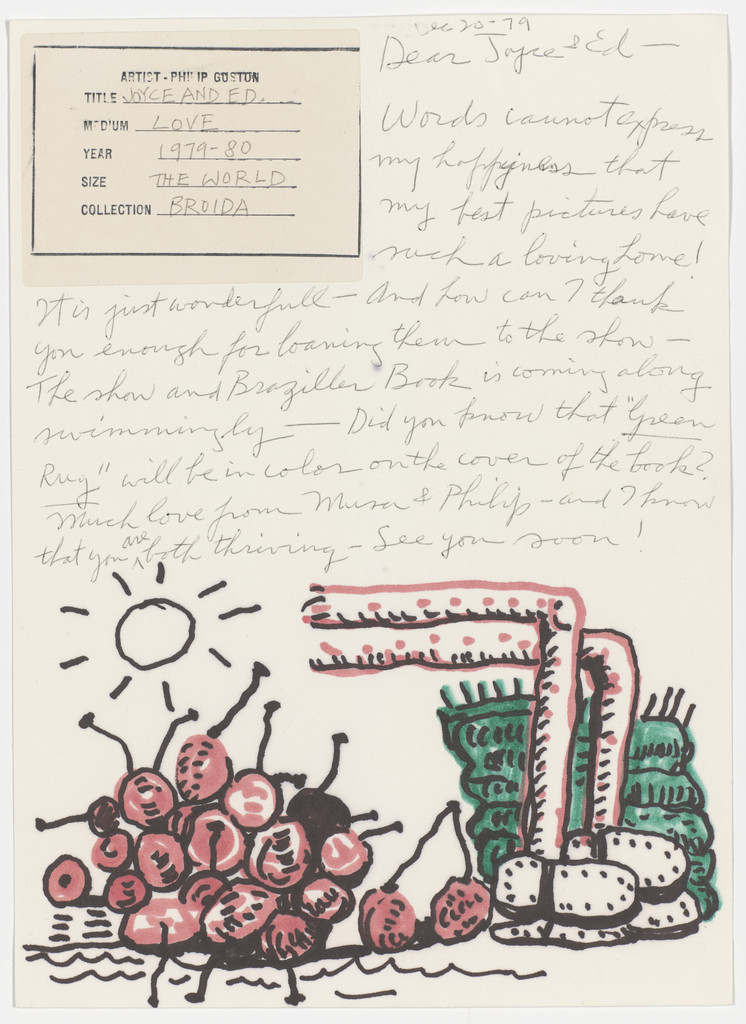 Dec 20-79
ARTIST - PHILIP GUSTON
TITLE JOYCE AND ED.
MEDIUM LOVE
YEAR 1979-80
SIZE THE WORLD
COLLECTION BROIDA
Dear Joyce & Ed —
Words cannot express
my happyness that
my best pictures have
such a loving home!
It is just wonderfull — And how can I thank
you enough for loaning them to the show —
The show and Braziller Book is coming along
swimmingly — Did you know that "Green
Rug" will be in color on the cover of the book?
Much love from Musa & Philip — and I know
that you are both thriving — See you soon!